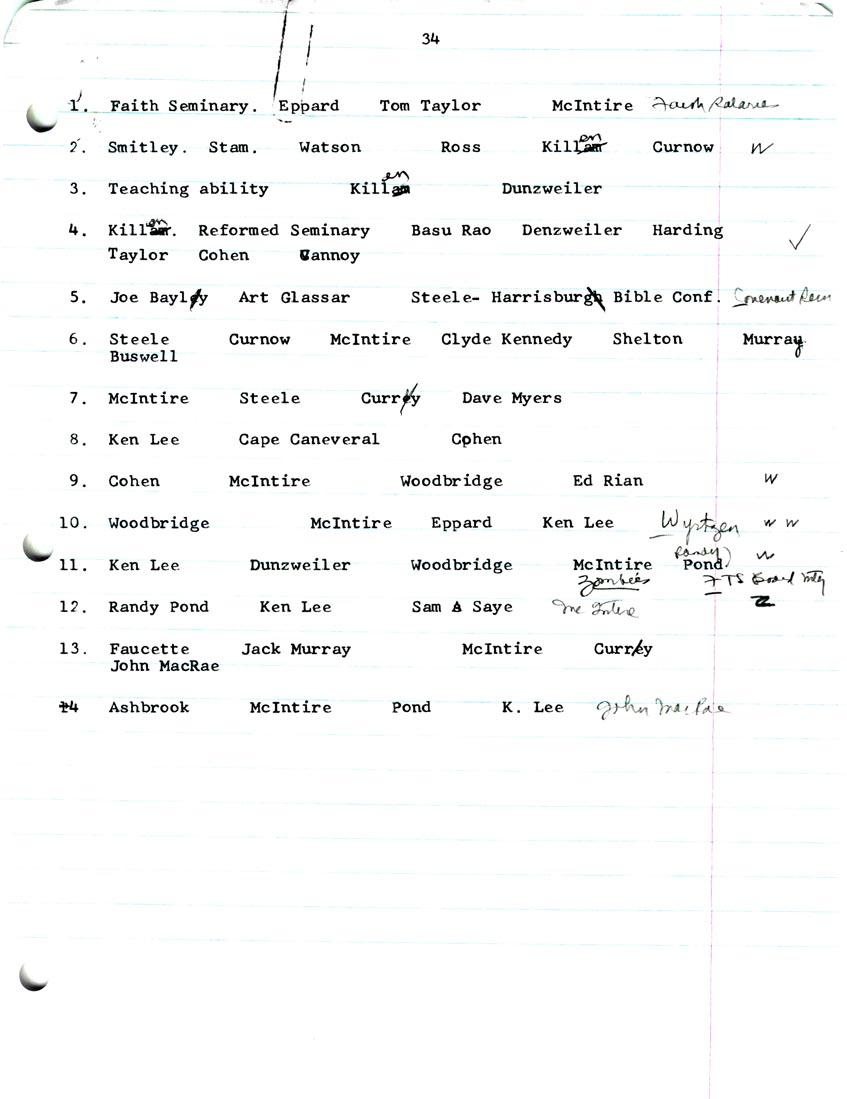 34
1. Faith Seminary. Eppard Tom Taylor McIntire Faith
2. Smitley. Stam. Watson Ross Killen Curnow W
3. Teaching ability Killen Dunzweiler
4. Killen. Reformed Seminary Basu Rao Denzweiler Harding ✓
Taylor Cohen Vannoy
5. Joe Bayly Art Glassar Steele- Harrisburg Bible Conf. Covenant Sem
6. Steele Curnow McIntire Clyde Kennedy Shelton Murray
Buswell
7. McIntire Steele Curry Dave Myers
8. Ken Lee Cape Caneveral Cohen
9. Cohen McIntire Woodbridge Ed Rian W
10. Woodbridge McIntire Eppard Ken Lee Wyrtzen w w
11. Ken Lee Dunzweiler Woodbridge McIntire (Randy) Pond w
Zombies FTS Board Mtg
12. Randy Pond Ken Lee Sam A Saye McIntire Z
13. Faucette Jack Murray McIntire Curry
John MacRae
14 Ashbrook McIntire Pond K. Lee John MacRae